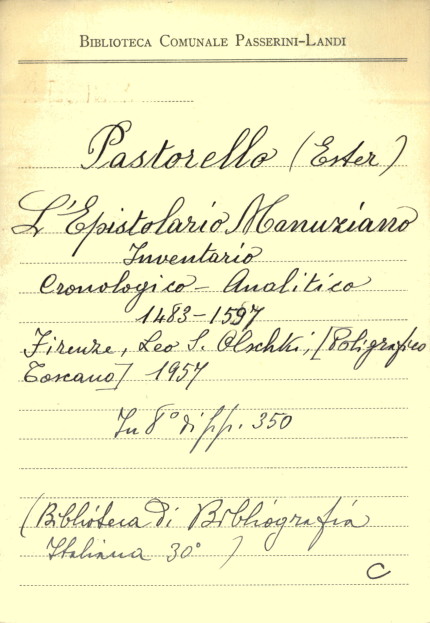 Biblioteca Comunale Passerini-Landi
Pastorello (Ester)
L'Epistolario Manuziano
Inventario
Cronologico - Analitico
1483-1597
Firenze, Leo S. Olschki, [Poligrafico
Toscano] 1957
In 8° di pp. 350
(Biblioteca di Bibliografia
Italiana 30° )
C